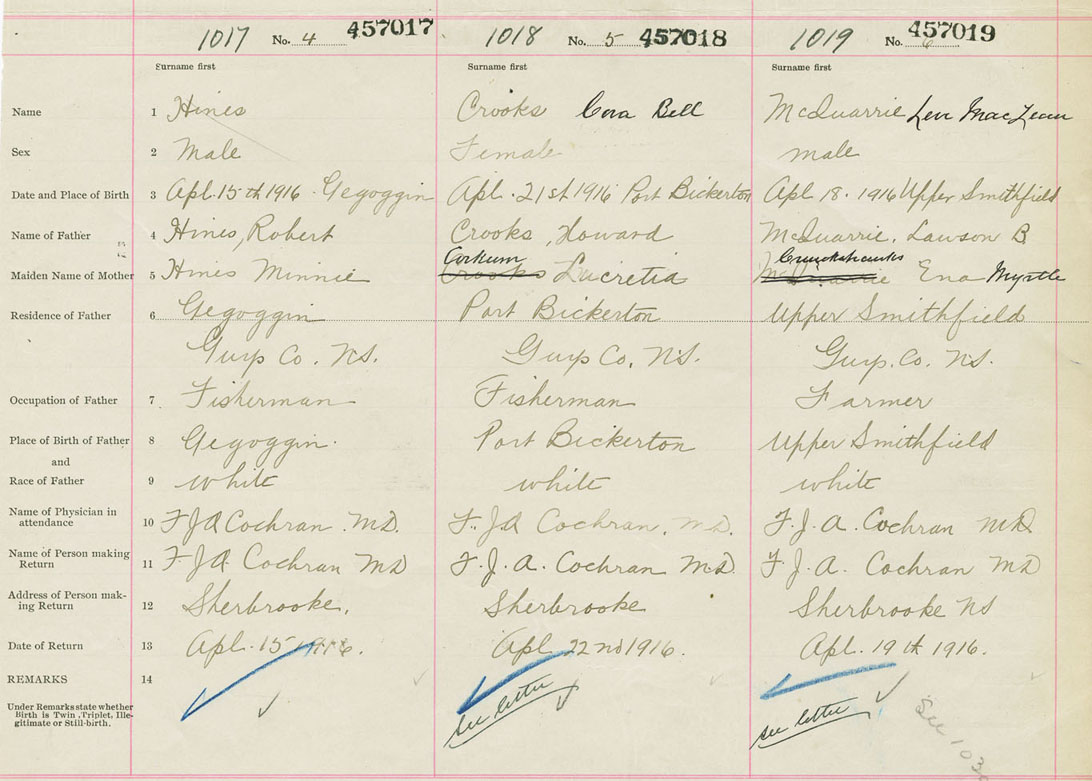 1017 No. 4 457017 1018 No. 5 457018 1019 No. 6 457019
Surname first Surname first Surname first
Name 1 Hines Crooks Cora Bell McQuarrie Levi MacLean
Sex 2 Male Female male
Date and Place of Birth 3 Apl. 15th 1916 Gegoggin Apl. 21st 1916 Port Bickerton Apl 18. 1916 Upper Smithfield
Name of Father 4 Hines, Robert Crooks, Howard McQuarrie, Lawson B
Maiden Name of Mother 5 Hines Minnie Crooks Corkum Lucretia McQuarrie Cruickshanks Ena Myrtle
Residence of Father 6 Gegoggin Port Bickerton Upper Smithfield
Guys Co. N.S. Guys Co, N.S. Guys. Co. N.S.
Occupation of Father 7 Fisherman Fisherman Farmer
Place of Birth of Father 8 Gegoggin. Port Bickerton Upper Smithfield
and
Race of Father 9 white white white
Name of Physician in
attendance 10 F.J.A. Cochran. M.D. F.J.A. Cochran, M.D. F.J.A. Cochran M.D.
Name of Person making
Return 11 F.J.A. Cochran M.D. F.J.A. Cochran M.D. F.J.A. Cochran M.D.
Address of Person mak-
ing Return 12 Sherbrooke, Sherbrooke Sherbrooke NS
Date of Return 13 Apl. 15 1916. Apl 22nd 1916. Apl. 19th 1916.
REMARKS 14
Under Remarks state whether
Birth is Twin, Triplet, Ille-
gitimate or Still-birth.
see letter see letter See